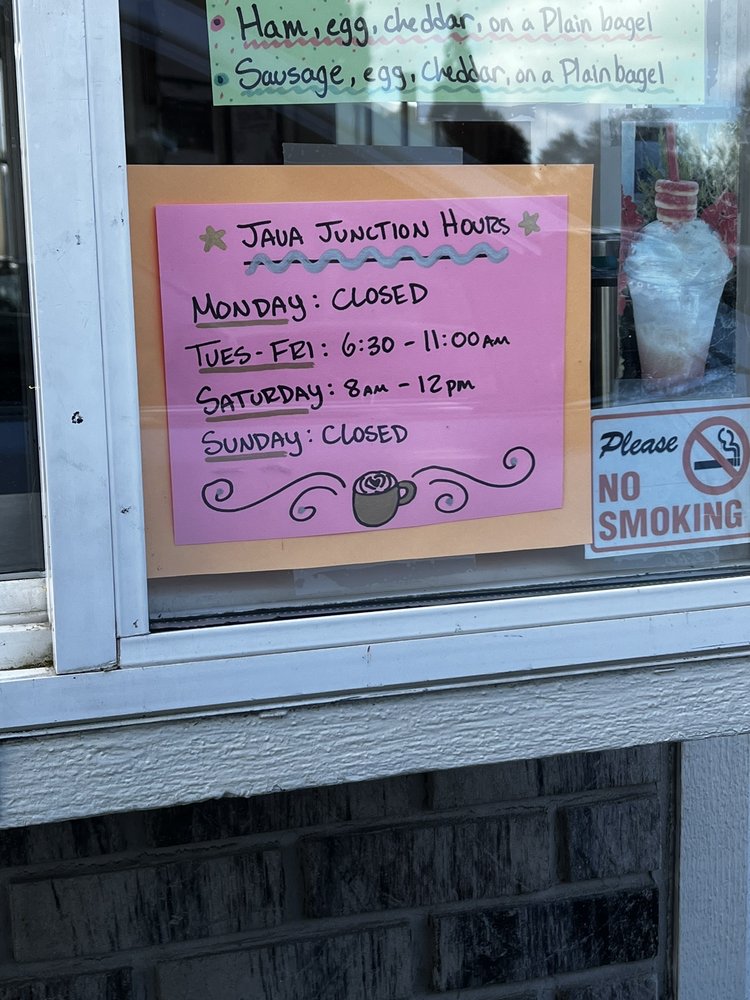 Ham, egg, cheddar, on a Plain bagel
Sausage, egg, cheddar, on a Plain bagel
JAVA JUNCTION HOURS
MONDAY: CLOSED
TUES-FRI: 6:30 - 11:00AM
SATURDAY: 8AM - 12PM
SUNDAY: CLOSED
Please
NO
SMOKING